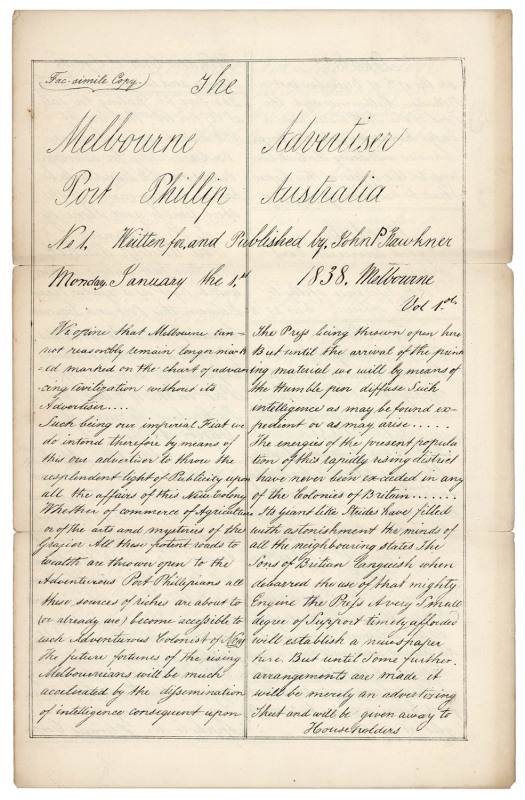 Fac-simile Copy.
The
Melbourne Advertiser
Port Phillip Australia
No 1. Written for, and Published by, John P Fawkner
Monday. January the 1.st 1838. Melbourne
Vol 1.st
We opine that Melbourne can-
not reasonbly remain longer mark
-ed marked on the chart of advan
cing civilization without its
Advertiser....
Such being our imperial Fiat we
do intend therefore by means of
this our advertiser to throw the
resplendent light of Publicity upon
all the affairs of this New Colony
Whether of commerce of Agriculture
or of the arts and mysteries of the
Grazier All these potent roads to
wealth are thrown open to the
Adventurous Port Phillipians all
these sources of riches are about to
(or already are) become accessible to
each Adventurous Colonist of
The future fortunes of the rising
Melbournians will be much
accelerated by the dissemination
of intelligence consequent upon
The Press being thrown open here
But until the arrival of the print
ing material we will by means of
the Humble pen diffuse Such
intelligence as may be found ex-
pedient or as may arise.....
The energies of the present popula
tion of this rapidly rising district
have never been exceeded in any
of the Colonies of Britain.......
Its giant like Strides have filled
with astonishment the minds of
all the neighbouring states The
Sons of Britian languish when
debarred the use of that mighty
Engine the Press A very Small
degree of Support timely afforded
will establish a newspaper
here. But until Some further
arrangements are made it
will be merely an advertising
Sheet and will be given away to
Householders